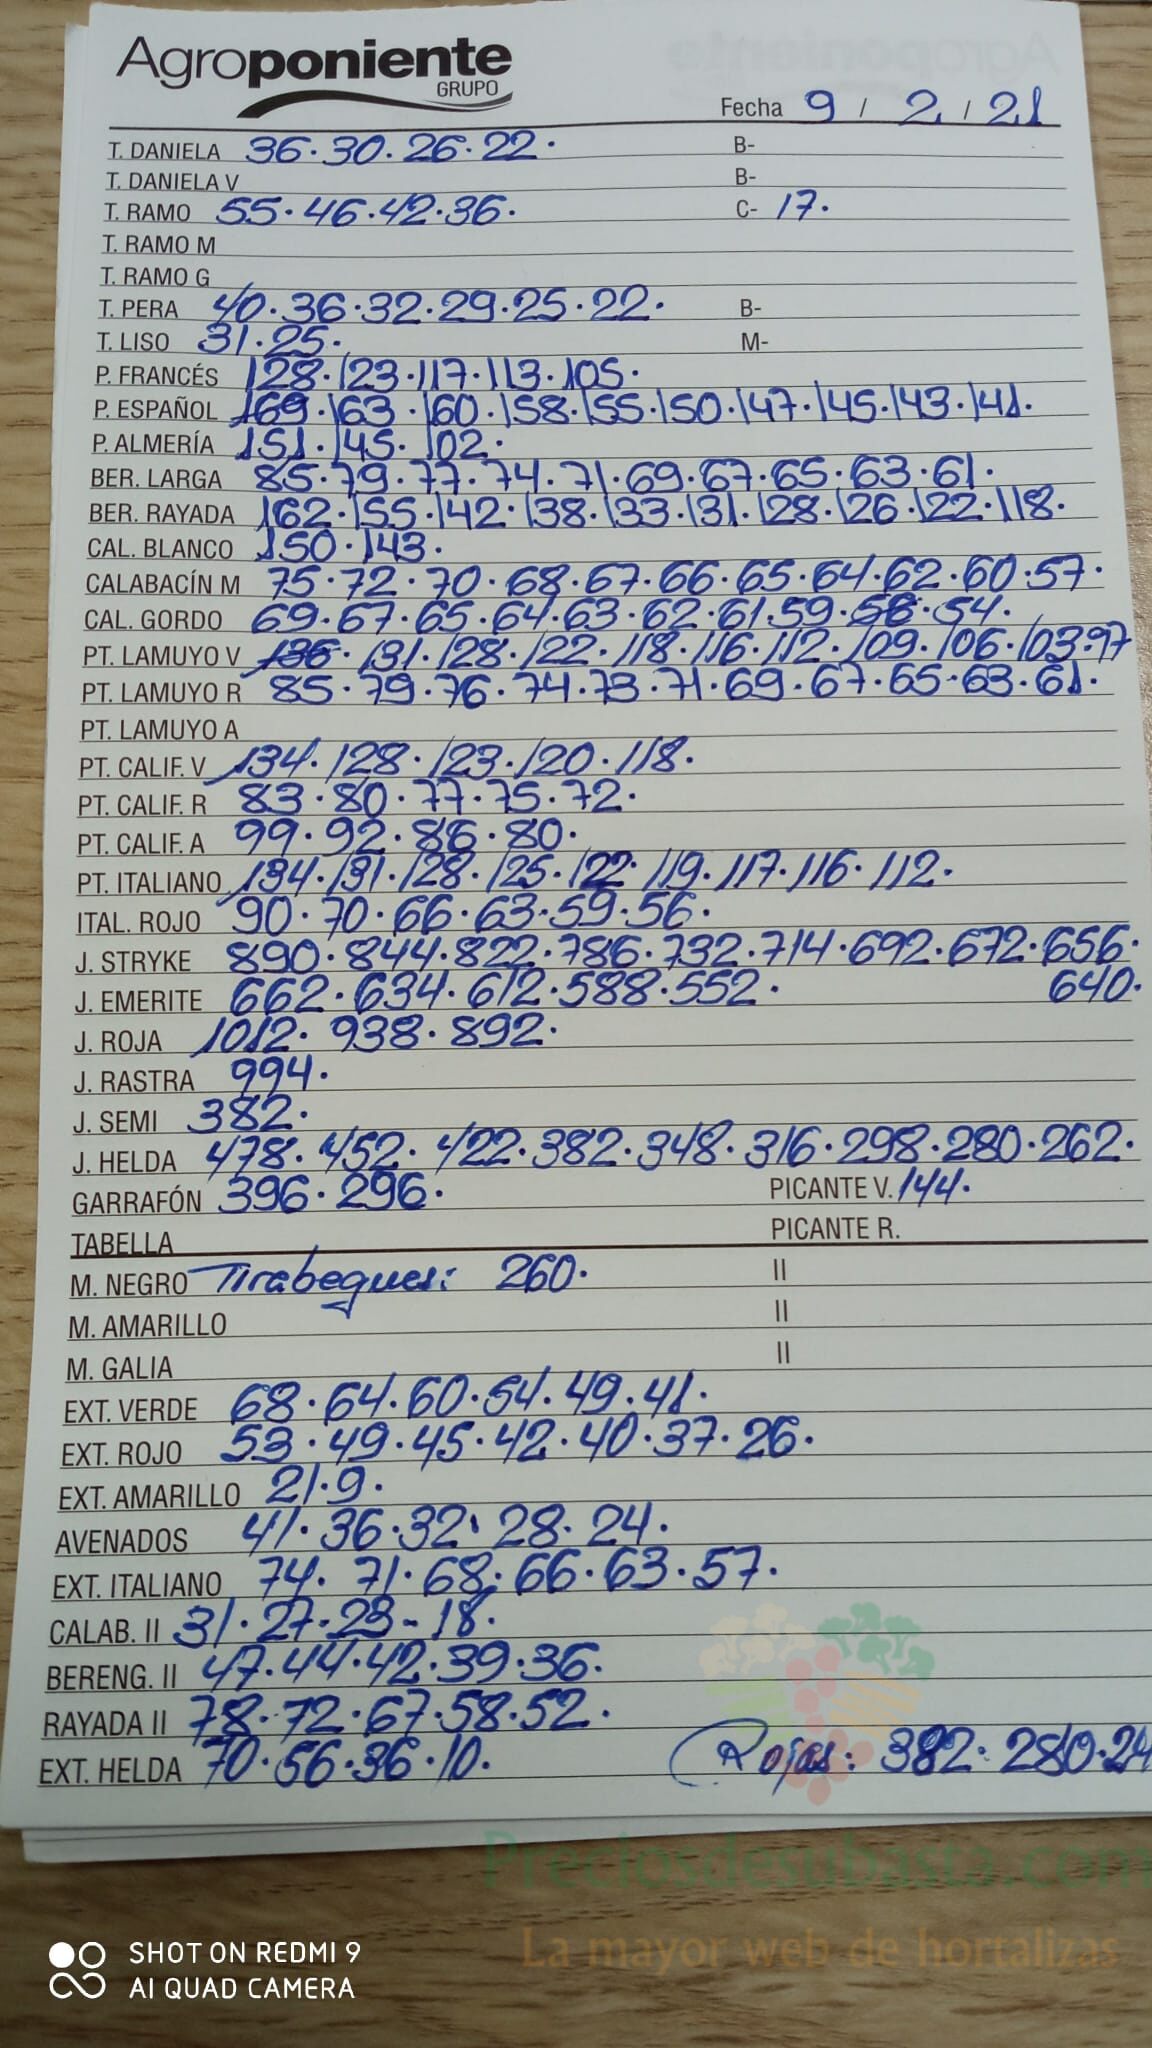 Agroponiente
GRUPO
Fecha 9 / 2 / 21
T. DANIELA 36.30.26.22. B-
T. DANIELA V B-
T. RAMO 55.46.42.36. C- 17.
T. RAMO M
T. RAMO G
T. PERA 40.36.32.29.25.22. B-
T. LISO 31.25. M-
P. FRANCÉS 128.123.117.113.105.
P. ESPAÑOL 169.163.160.158.155.150.147.145.143.141.
P. ALMERÍA 151.145.102.
BER. LARGA 85.79.77.74.71.69.67.65.63.61.
BER. RAYADA 162.155.142.138.133.131.128.126.122.118.
CAL. BLANCO 150.143.
CALABACÍN M 75.72.70.68.67.66.65.64.62.60.57.
CAL. GORDO 69.67.65.64.63.62.61.59.58.54.
PT. LAMUYO V 136.131.128.122.118.116.112.109.106.103.97
PT. LAMUYO R 85.79.76.74.73.71.69.67.65.63.61.
PT. LAMUYO A
PT. CALIF. V 134.128.123.120.118.
PT. CALIF. R 83.80.77.75.72.
PT. CALIF. A 99.92.86.80.
PT. ITALIANO 134.131.128.125.122.119.117.116.112.
ITAL. ROJO 90.70.66.63.59.56.
J. STRYKE 890.844.822.786.732.714.692.672.656.
J. EMERITE 662.634.612.588.552. 640.
J. ROJA 1012.938.892.
J. RASTRA 994.
J. SEMI 382.
J. HELDA 478.452.422.382.348.316.298.280.262.
GARRAFÓN 396.296. PICANTE V. 144.
TABELLA PICANTE R.
M. NEGRO Tirabeques: 260. II
M. AMARILLO II
M. GALIA II
EXT. VERDE 68.64.60.54.49.41.
EXT. ROJO 53.49.45.42.40.37.26.
EXT. AMARILLO 21.9.
AVENADOS 41.36.32.28.24.
EXT. ITALIANO 74.71.68.66.63.57.
CALAB. II 31.27-23-18.
BERENG. II 47.44.42.39.36.
RAYADA II 78.72.67.58.52.
EXT. HELDA 70.56.36.10. Rojas: 382.280.24
Preciosdesubasta.com
La mayor web de hortalizas
SHOT ON REDMI 9
AI QUAD CAMERA